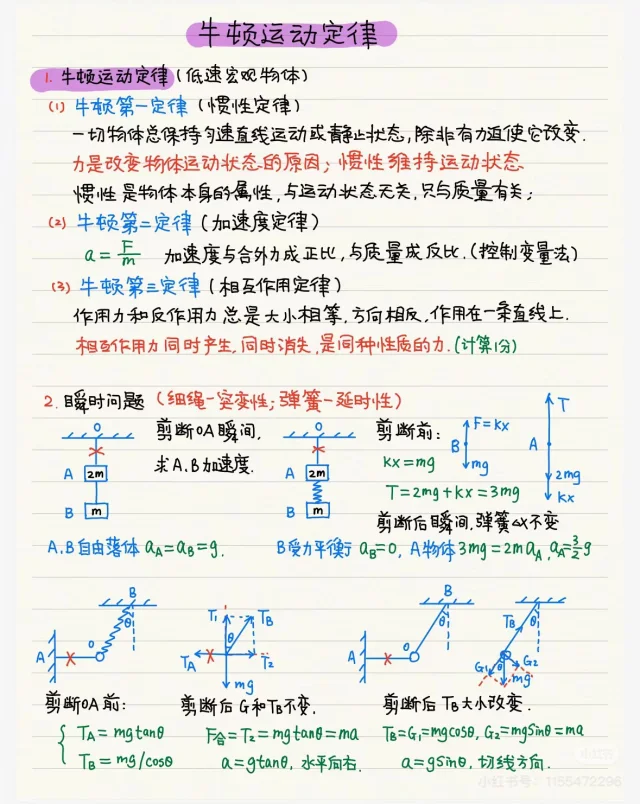 牛顿运动定律
1. 牛顿运动定律(低速宏观物体)
(1) 牛顿第一定律(惯性定律)
一切物体总保持匀速直线运动或静止状态,除非有力迫使它改变.
力是改变物体运动状态的原因;惯性维持运动状态
惯性是物体本身的属性,与运动状态无关,只与质量有关;
(2) 牛顿第二定律(加速度定律)
a = F/m 加速度与合外力成正比,与质量成反比.(控制变量法)
(3) 牛顿第三定律(相互作用定律)
作用力和反作用力总是大小相等,方向相反,作用在一条直线上.
相互作用力同时产生,同时消失,是同种性质的力.(计算1分)
2. 瞬时问题(细绳-突变性;弹簧-延时性)
O
A 2m
B m
剪断OA瞬间,
求A.B加速度.
O
A 2m
B m
剪断前:
kx=mg
T=2mg+kx=3mg
F=kx
B
mg
T
A
2mg
kx
剪断后瞬间,弹簧△x不变
A.B自由落体 aA=aB=g.
B受力平衡 aB=0, A物体3mg=2maA, aA=3/2g
B
θ
A
O
T1
TB
θ
TA
T2
mg
B
θ
A
O
TB
θ
G1
θ
G2
mg
剪断OA前:
TA=mgtanθ
TB=mg/cosθ
剪断后G和TB不变.
F合=T2=mgtanθ=ma
a=gtanθ, 水平向右.
剪断后TB大小改变.
TB=G1=mgcosθ, G2=mgsinθ=ma
a=gsinθ, 切线方向.
小红书
小红书号: 1155472296